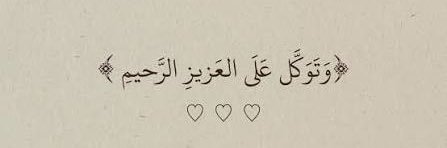 ﴿وَتَوَكَّل عَلَى العَزيزِ الرَّحيمِ ﴾
♡ ♡ ♡